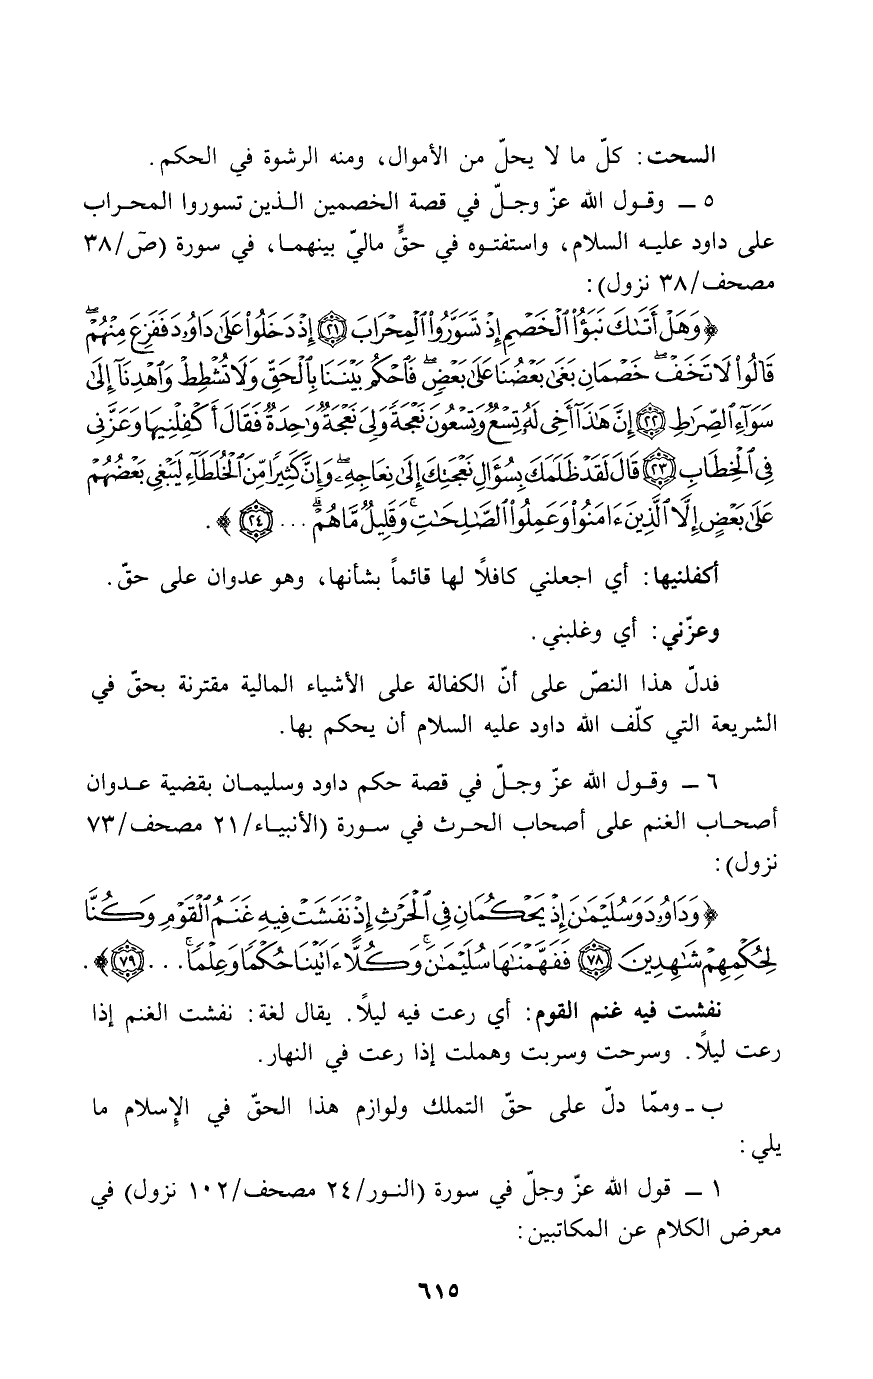 السحت: كلّ ما لا يحلّ من الأموال، ومنه الرشوة في الحكم.
٥ ـ وقـول الله عزّ وجـلّ في قصة الخصمين الـذين تسوروا المحـراب
على داود عليـه السلام، واستفتـوه في حقٍّ ماليّ بينهمـا، في سورة (صۤ/٣٨
مصحف/٣٨ نزول):
﴿وَهَلْ أَتَىٰكَ نَبَؤُا۟ ٱلْخَصْمِ إِذْ تَسَوَّرُوا۟ ٱلْمِحْرَابَ ۝٢١ إِذْ دَخَلُوا۟ عَلَىٰ دَاوُۥدَ فَفَزِعَ مِنْهُمْ ۖ
قَالُوا۟ لَا تَخَفْ ۖ خَصْمَانِ بَغَىٰ بَعْضُنَا عَلَىٰ بَعْضٍ ۖ فَٱحْكُم بَيْنَنَا بِٱلْحَقِّ وَلَا تُشْطِطْ وَٱهْدِنَآ إِلَىٰ
سَوَآءِ ٱلصِّرَٰطِ ۝٢٢ إِنَّ هَٰذَآ أَخِى لَهُۥ تِسْعٌ وَتِسْعُونَ نَعْجَةً وَلِىَ نَعْجَةٌ وَٰحِدَةٌ فَقَالَ أَكْفِلْنِيهَا وَعَزَّنِى
فِى ٱلْخِطَابِ ۝٢٣ قَالَ لَقَدْ ظَلَمَكَ بِسُؤَالِ نَعْجَتِكَ إِلَىٰ نِعَاجِهِۦ ۖ وَإِنَّ كَثِيرًا مِّنَ ٱلْخُلَطَآءِ لَيَبْغِى بَعْضُهُمْ
عَلَىٰ بَعْضٍ إِلَّا ٱلَّذِينَ ءَامَنُوا۟ وَعَمِلُوا۟ ٱلصَّٰلِحَٰتِ وَقَلِيلٌ مَّا هُمْ ۗ ... ۝٢٤﴾.
أكفلنيها: أي اجعلني كافلاً لها قائماً بشأنها، وهو عدوان على حقّ.
وعزّني: أي وغلبني.
فدلّ هذا النصّ على أنّ الكفالة على الأشياء المالية مقترنة بحقّ في
الشريعة التي كلّف الله داود عليه السلام أن يحكم بها.
٦ ـ وقـول الله عزّ وجـلّ في قصة حكم داود وسليمـان بقضية عـدوان
أصحـاب الغنم على أصحاب الحـرث في سـورة (الأنبيـاء/٢١ مصحف/٧٣
نزول):
﴿وَدَاوُۥدَ وَسُلَيْمَٰنَ إِذْ يَحْكُمَانِ فِى ٱلْحَرْثِ إِذْ نَفَشَتْ فِيهِ غَنَمُ ٱلْقَوْمِ وَكُنَّا
لِحُكْمِهِمْ شَٰهِدِينَ ۝٧٨ فَفَهَّمْنَٰهَا سُلَيْمَٰنَ ۚ وَكُلًّا ءَاتَيْنَا حُكْمًا وَعِلْمًا ۚ ... ۝٧٩﴾.
نفشت فيه غنم القوم: أي رعت فيه ليلاً. يقال لغة: نفشت الغنم إذا
رعت ليلاً. وسرحت وسربت وهملت إذا رعت في النهار.
ب ـ وممّا دلّ على حقّ التملك ولوازم هذا الحقّ في الإسلام ما
يلي:
١ ـ قول الله عزّ وجلّ في سورة (النـور/٢٤ مصحف/١٠٢ نزول) في
معرض الكلام عن المكاتبين:
٦١٥